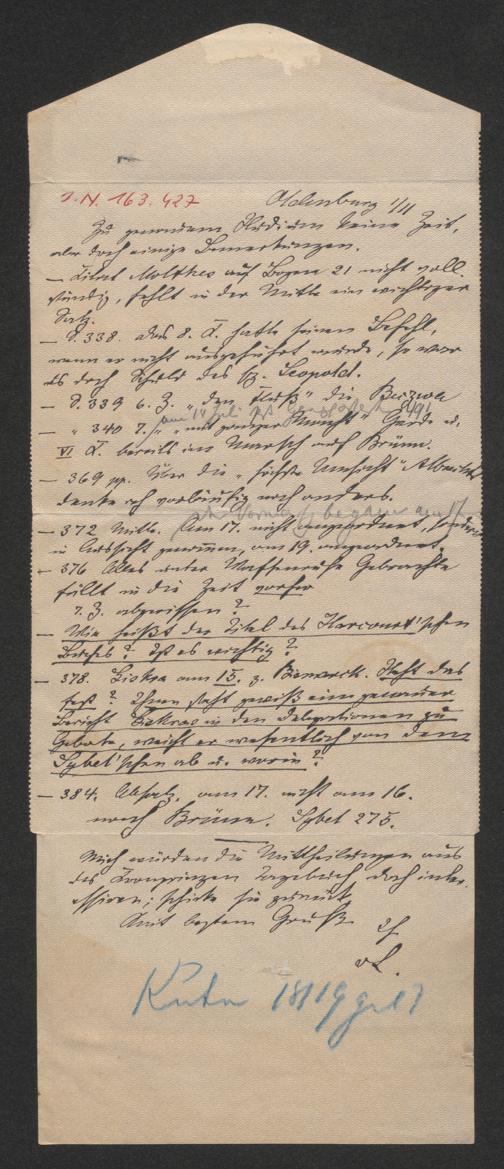 I.N. 163.427
Oldenburg 1/11
Zu genauem Studium keine Zeit,
aber doch einige Bemerkungen.
— Citat Moltkes auf Bogen 21 nicht voll-
ständig, fehlt in der Mitte ein wichtiger
Satz.
— S. 338. das 8. K. hatte seinen Befehl,
wenn er nicht ausgeführt wurde, so war
es doch Schuld des Ez. Leopold.
— S. 339 6. Z. "den Fluß" die Beczwa
am 14 Juli
— " 340 7. Garde u.
VI K. bereits im Marsch auf Brünn.
— 369 pp. Über die "höchste Umsicht" Albrechts
denke ich vorläufig noch anders.
— 372 Mitte. Am 17. nicht angeordnet, sondern
in Aussicht genommen, am 19. angeordnet.
— 376 Alles unter Waffenruhe Gebrachte
fällt in die Zeit vorher
z. Z. abgewiesen?
— Wie heißt der Titel des Harcourt'schen
Buches? Ist es wichtig?
— 378. Giskra am 15. z. Bismarck. Steht das
fest? Ihnen steht gewiß ein genauer
Bericht Giskras in den Delegationen zu
Gebote, weicht er wesentlich von dem
Sybel'schen ab u. worin?
— 384. Absatz. am 17. nicht am 16.
nach Brünn. Sybel 275.
Mich würden die Mittheilungen aus
des Kronprinzen Tagebuch doch inter-
essiren; schicke sie zurück
Mit bestem Gruß
vL.
Kuhn